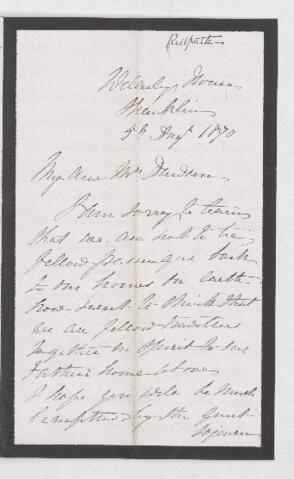 Redpath
5th Augt 1870
My dear Mrs Dawson
I am sorry to learn
that we are not to be
fellow passengers back
to our homes on earth
how sweet to think that
we are fellow travellers
together in Spirit to our
Father's home above
I hope you will be much
benefitted by the quiet
sojourn